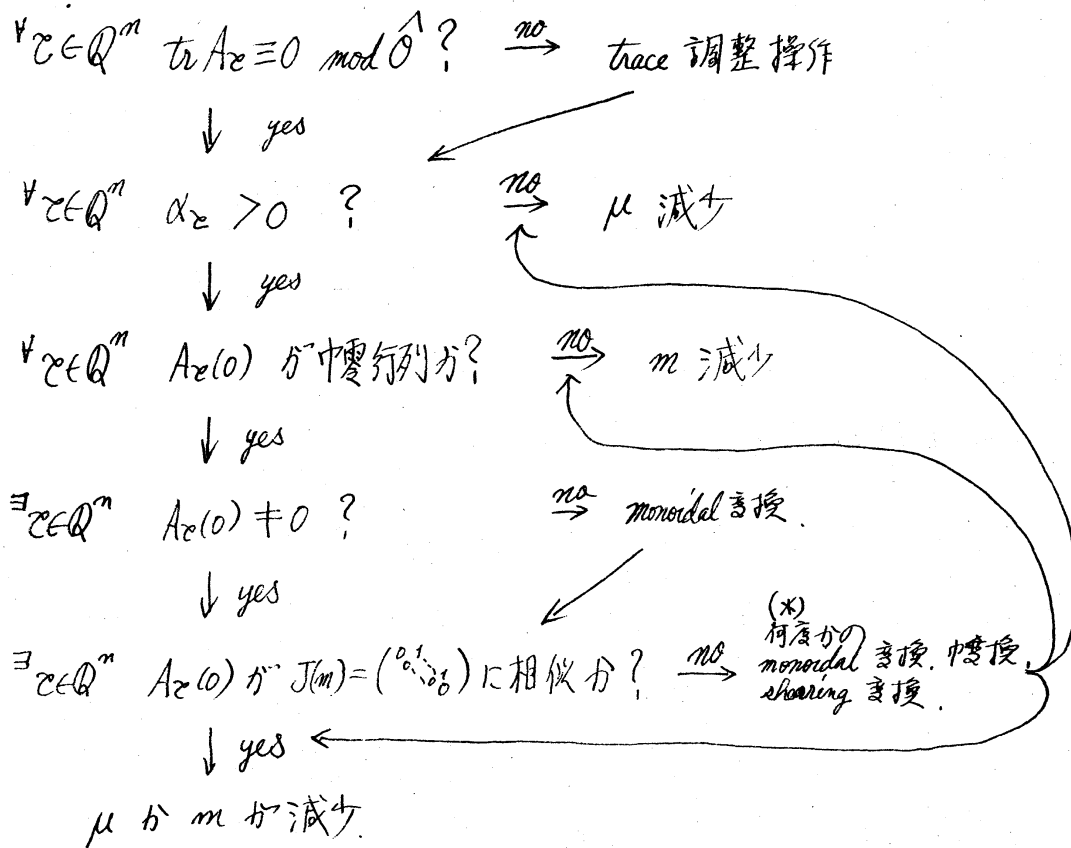 ∀τ∈Qⁿ tr A_τ ≡ 0 mod Ô ? no→ trace 調整操作
↓ yes
∀τ∈Qⁿ α_τ > 0 ? no→ μ 減少
↓ yes
∀τ∈Qⁿ A_τ(0) が巾零行列か? no→ m 減少
↓ yes
∃τ∈Qⁿ A_τ(0) ≠ 0 ? no→ monoidal 変換.
↓ yes
(*)
何度かの
∃τ∈Qⁿ A_τ(0) が J(m) = (0 1 0 ⋱ ⋱ 1 0 0) に相似か? no→ monoidal 変換. 巾変換.
shearing 変換.
↓ yes
μ か m が減少.